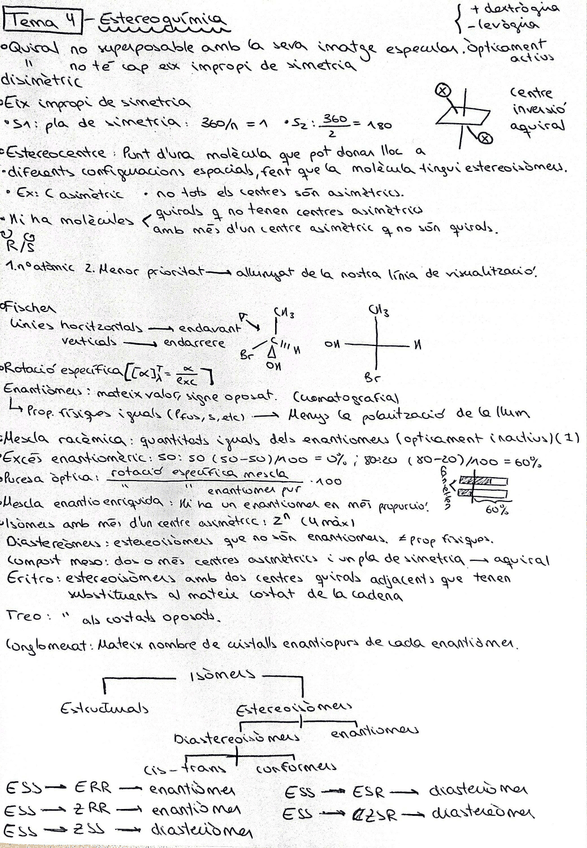 Tema 4 - Estereoquímica
+ dextrògira
- levògira
• Quiral no superposable amb la seva imatge especular. Òpticament actius
" no té cap eix impropi de simetria
disimètric
• Eix impropi de simetria
• S1: pla de simetria: 360/n = 1 • S2: 360/2 = 180
centre inversió aquiral
• Estereocentre: Punt d'una molècula que pot donar lloc a
• diferents configuracions espacials, fent que la molècula tingui estereoisòmers.
• Ex: C asimètric • no tots els centres són asimètrics.
• Hi ha molècules < quirals q no tenen centres asimètrics
amb més d'un centre asimètric q no són quirals.
R/S
1. nº atòmic 2. Menor prioritat → allunyat de la nostra línia de visualització.
• Fischer
Línies horitzontals → endavant
verticals → endarrere
CH3
C
Br
H
OH
CH3
OH
H
Br
• Rotació específica [[α]Tλ = α/l×c]
Enantiòmers: mateix valor, signe oposat. (Cromatografia)
↳ Prop. físiques iguals (Pfus, s, etc) → Menys la polarització de la llum
• Mescla racèmica: quantitats iguals dels enantiomers (òpticament inactius) (1)
• Excés enantiomèric: 50:50 (50-50)/100 = 0% ; 80:20 (80-20)/100 = 60%
• Puresa òptica: rotació específica mescla / " " enantiomer pur · 100
60%
• Mescla enantioenriquida: Hi ha un enantiomer en més proporció.
• Isòmers amb més d'un centre asimètric: 2ⁿ (4 màx)
Diastereòmers: estereoisòmers que no són enantiomers. ≠ prop físiques.
Compost meso: dos o més centres asimètrics i un pla de simetria → aquiral
Eritro: estereoisòmers amb dos centres quirals adjacents que tenen
substituents al mateix costat de la cadena
Treo: " als costats oposats.
Conglomerat: Mateix nombre de cristalls enantiopurs de cada enantiòmer.
Isòmers
Estructurals Estereoisòmers
Diastereoisòmers enantiomers
cis-trans conformers
ESS → ERR → enantiòmer ESS → ESR → diasteriòmer
ESS → ZRR → enantiòmer ESS → ZSR → diastereòmer
ESS → ZSS → diasteriòmer